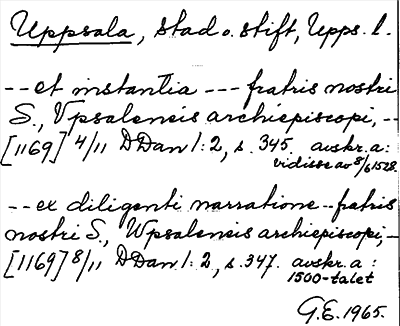 Uppsala, stad o. stift, Upps. l.
--et instantia --- fratris nostri
S., Vpsalensis archiepiscopi, --
[1169] 4/11 DDan 1:2, s. 345. avskr. a:
vidisse av 8/6 1528.
--ex diligenti narratione--fratris
nostri S., Wpsalensis archiepiscopi, --
[1169] 8/11 DDan 1:2, s. 347. avskr. a:
1500-talet
G.E. 1965.